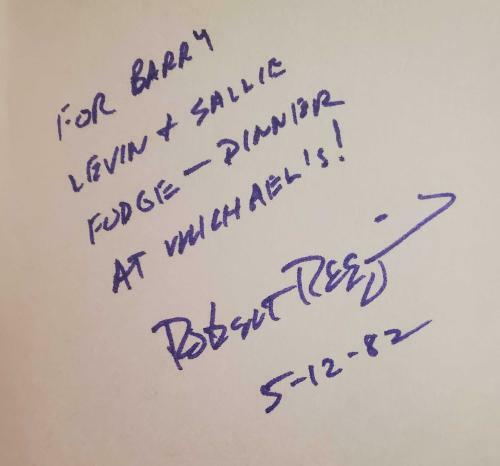 FOR BARRY
LEVIN + SALLIE
FUDGE — DINNER
AT MICHAEL'S!
Robert Reed
5-12-82